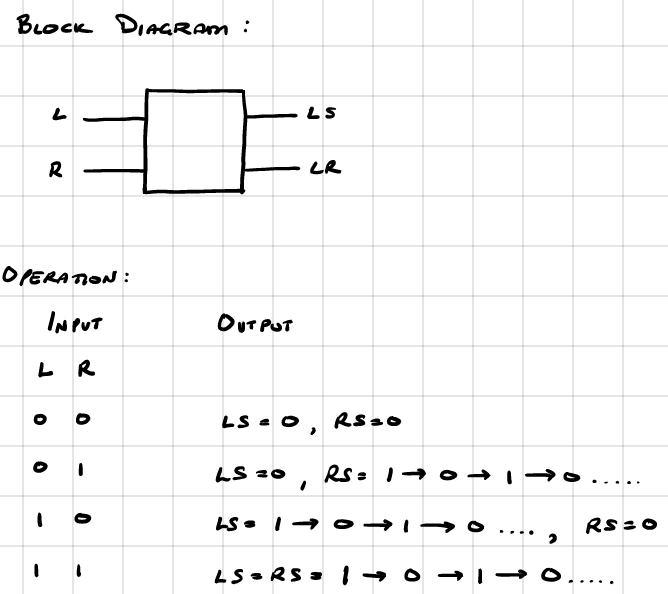 BLOCK DIAGRAM :
L LS
R LR
OPERATION :
INPUT OUTPUT
L R
0 0 LS = 0 , RS=0
0 1 LS =0 , RS= 1 → 0 → 1 → 0 .....
1 0 LS= 1 → 0 → 1 → 0 .... , RS=0
1 1 LS=RS= 1 → 0 → 1 → 0.....